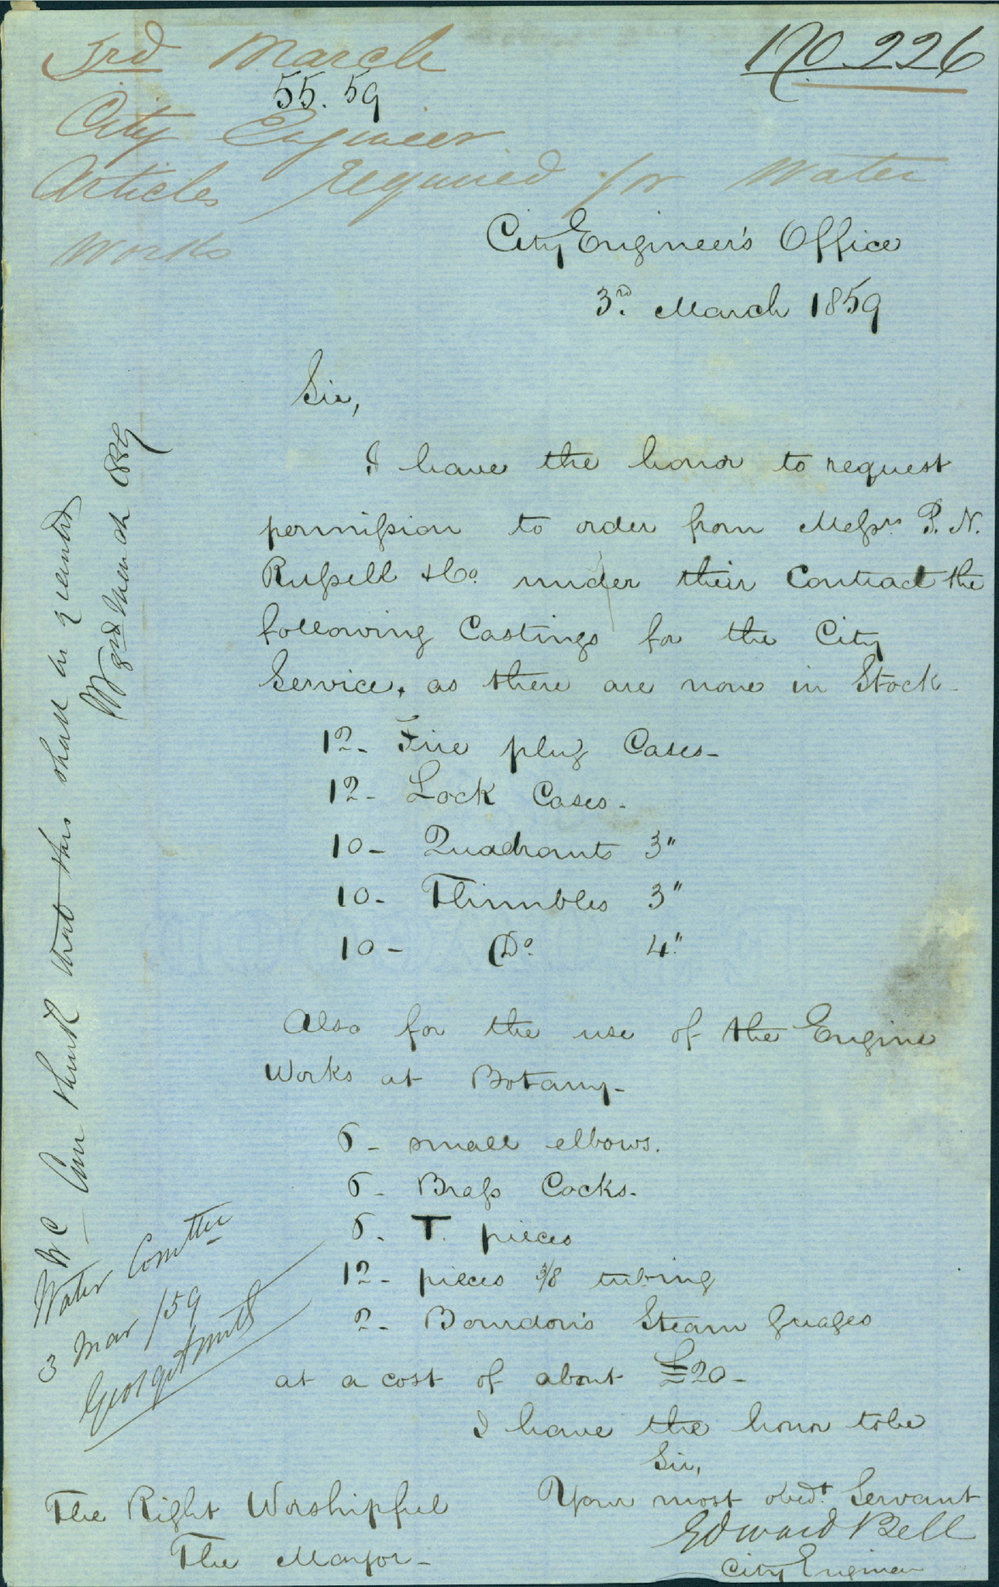 3rd March
No. 226
55. 59
City Engineer
Articles required for Water
Works
City Engineer's Office
3rd. March 1859
Sir,
I have the honor to request
permission to order from Messrs. P. N.
Russell & Co. under their Contract the
following Castings for the City
Service, as there are none in Stock-
12- Fire plug Cases-
12- Lock Cases-
10- Quadrants 3"
10- Thimbles 3"
10- Do. 4"
Also for the use of the Engine
Works at Botany-
6- small elbows.
6- Brass Cocks.
6- T. pieces
12- pieces 3/8 tubing
2- Bourdon's Steam Guages
at a cost of about £20-
I have the honor to be
Sir,
Your most obedt. Servant
Edward Bell
City Engineer
The Right Worshipful
The Mayor-
WC think that this shall be granted
3rd March 1859
Water Comttee
3 Mar /59
George Smith